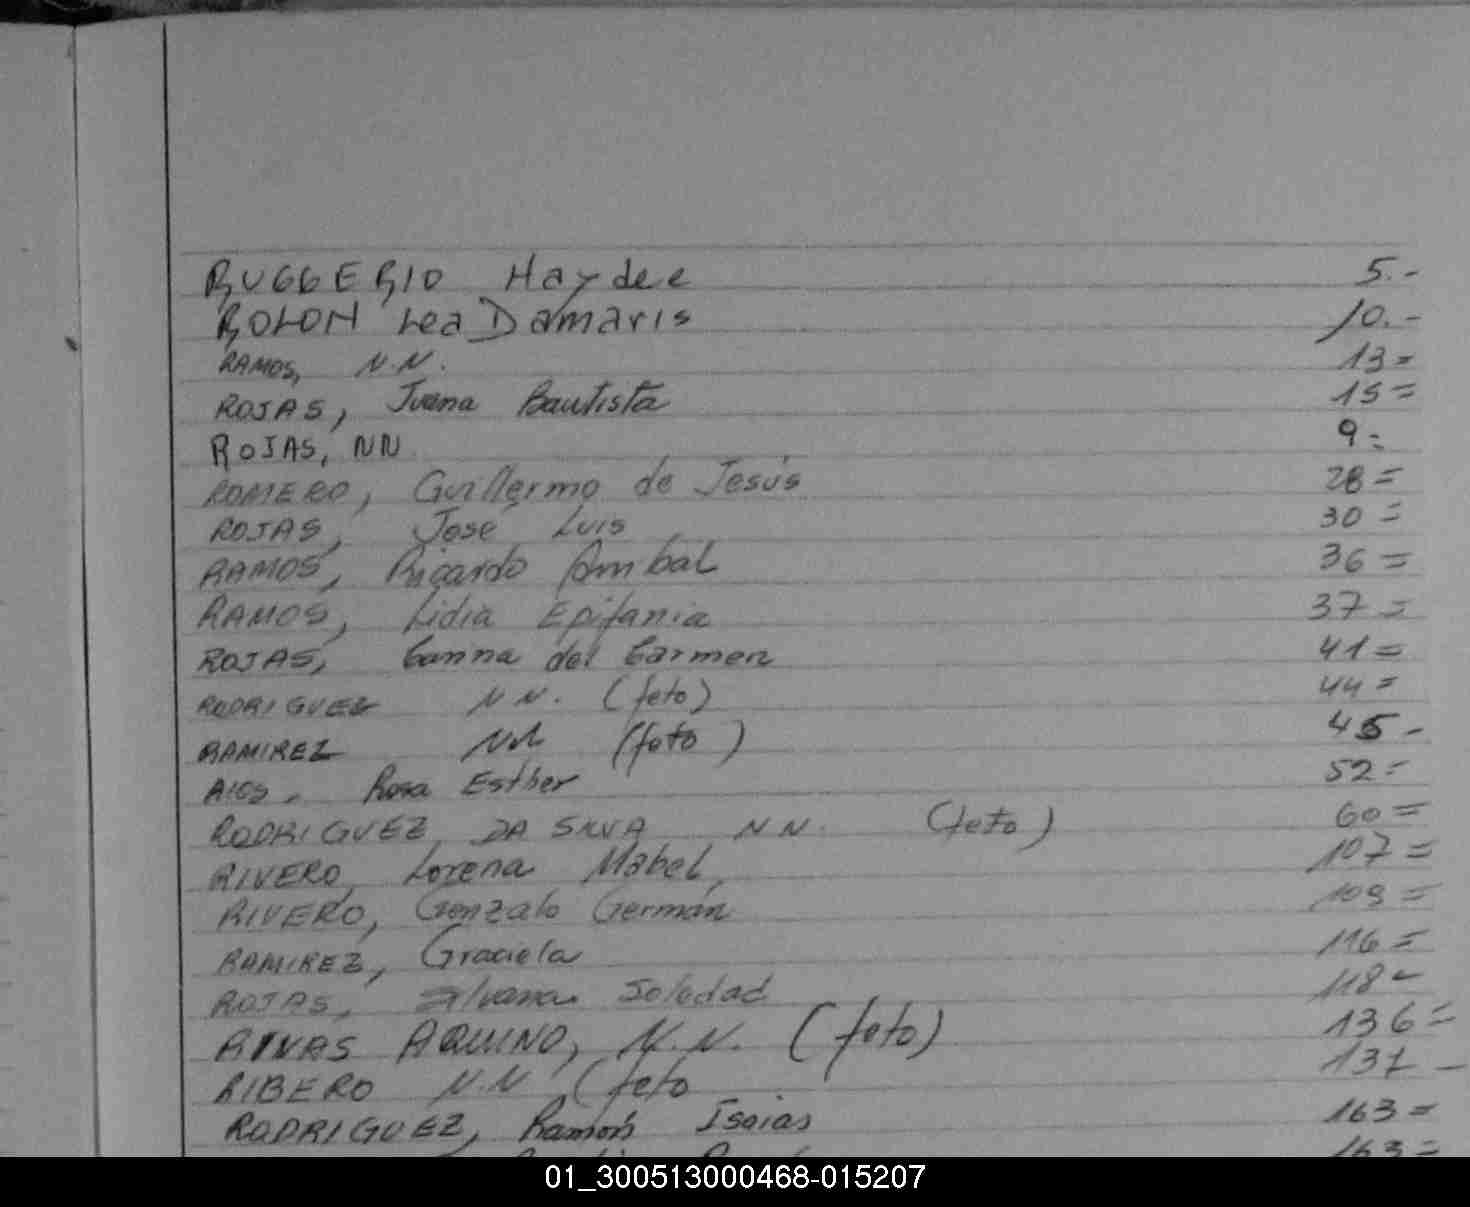 RUGGERIO Haydee 5.-
ROLON Lea Damaris 10.-
RAMOS, N.N. 13=
ROJAS, Juana Bautista 15=
ROJAS, NN 9=
ROMERO, Guillermo de Jesús 28=
ROJAS, José Luis 30=
RAMOS, Ricardo Anibal 36=
RAMOS, Lidia Epifania 37=
ROJAS, del Carmen 41=
RODRIGUEZ N N. (feto) 44=
RAMIREZ NN (feto) 45-
Rosa Esther 52=
RODRIGUEZ DA SILVA N N. (feto) 60=
RIVERO, Lorena Mabel, 107=
RIVERO, Gonzalo Germán =
RAMIREZ, Graciela 116=
ROJAS, Silvana Soledad 118-
RIVAS AQUINO, N.N. (feto) 136=
RIBERO N.N (feto 137-
RODRIGUEZ, Ramón Isaias 163=
163=
01_300513000468-015207